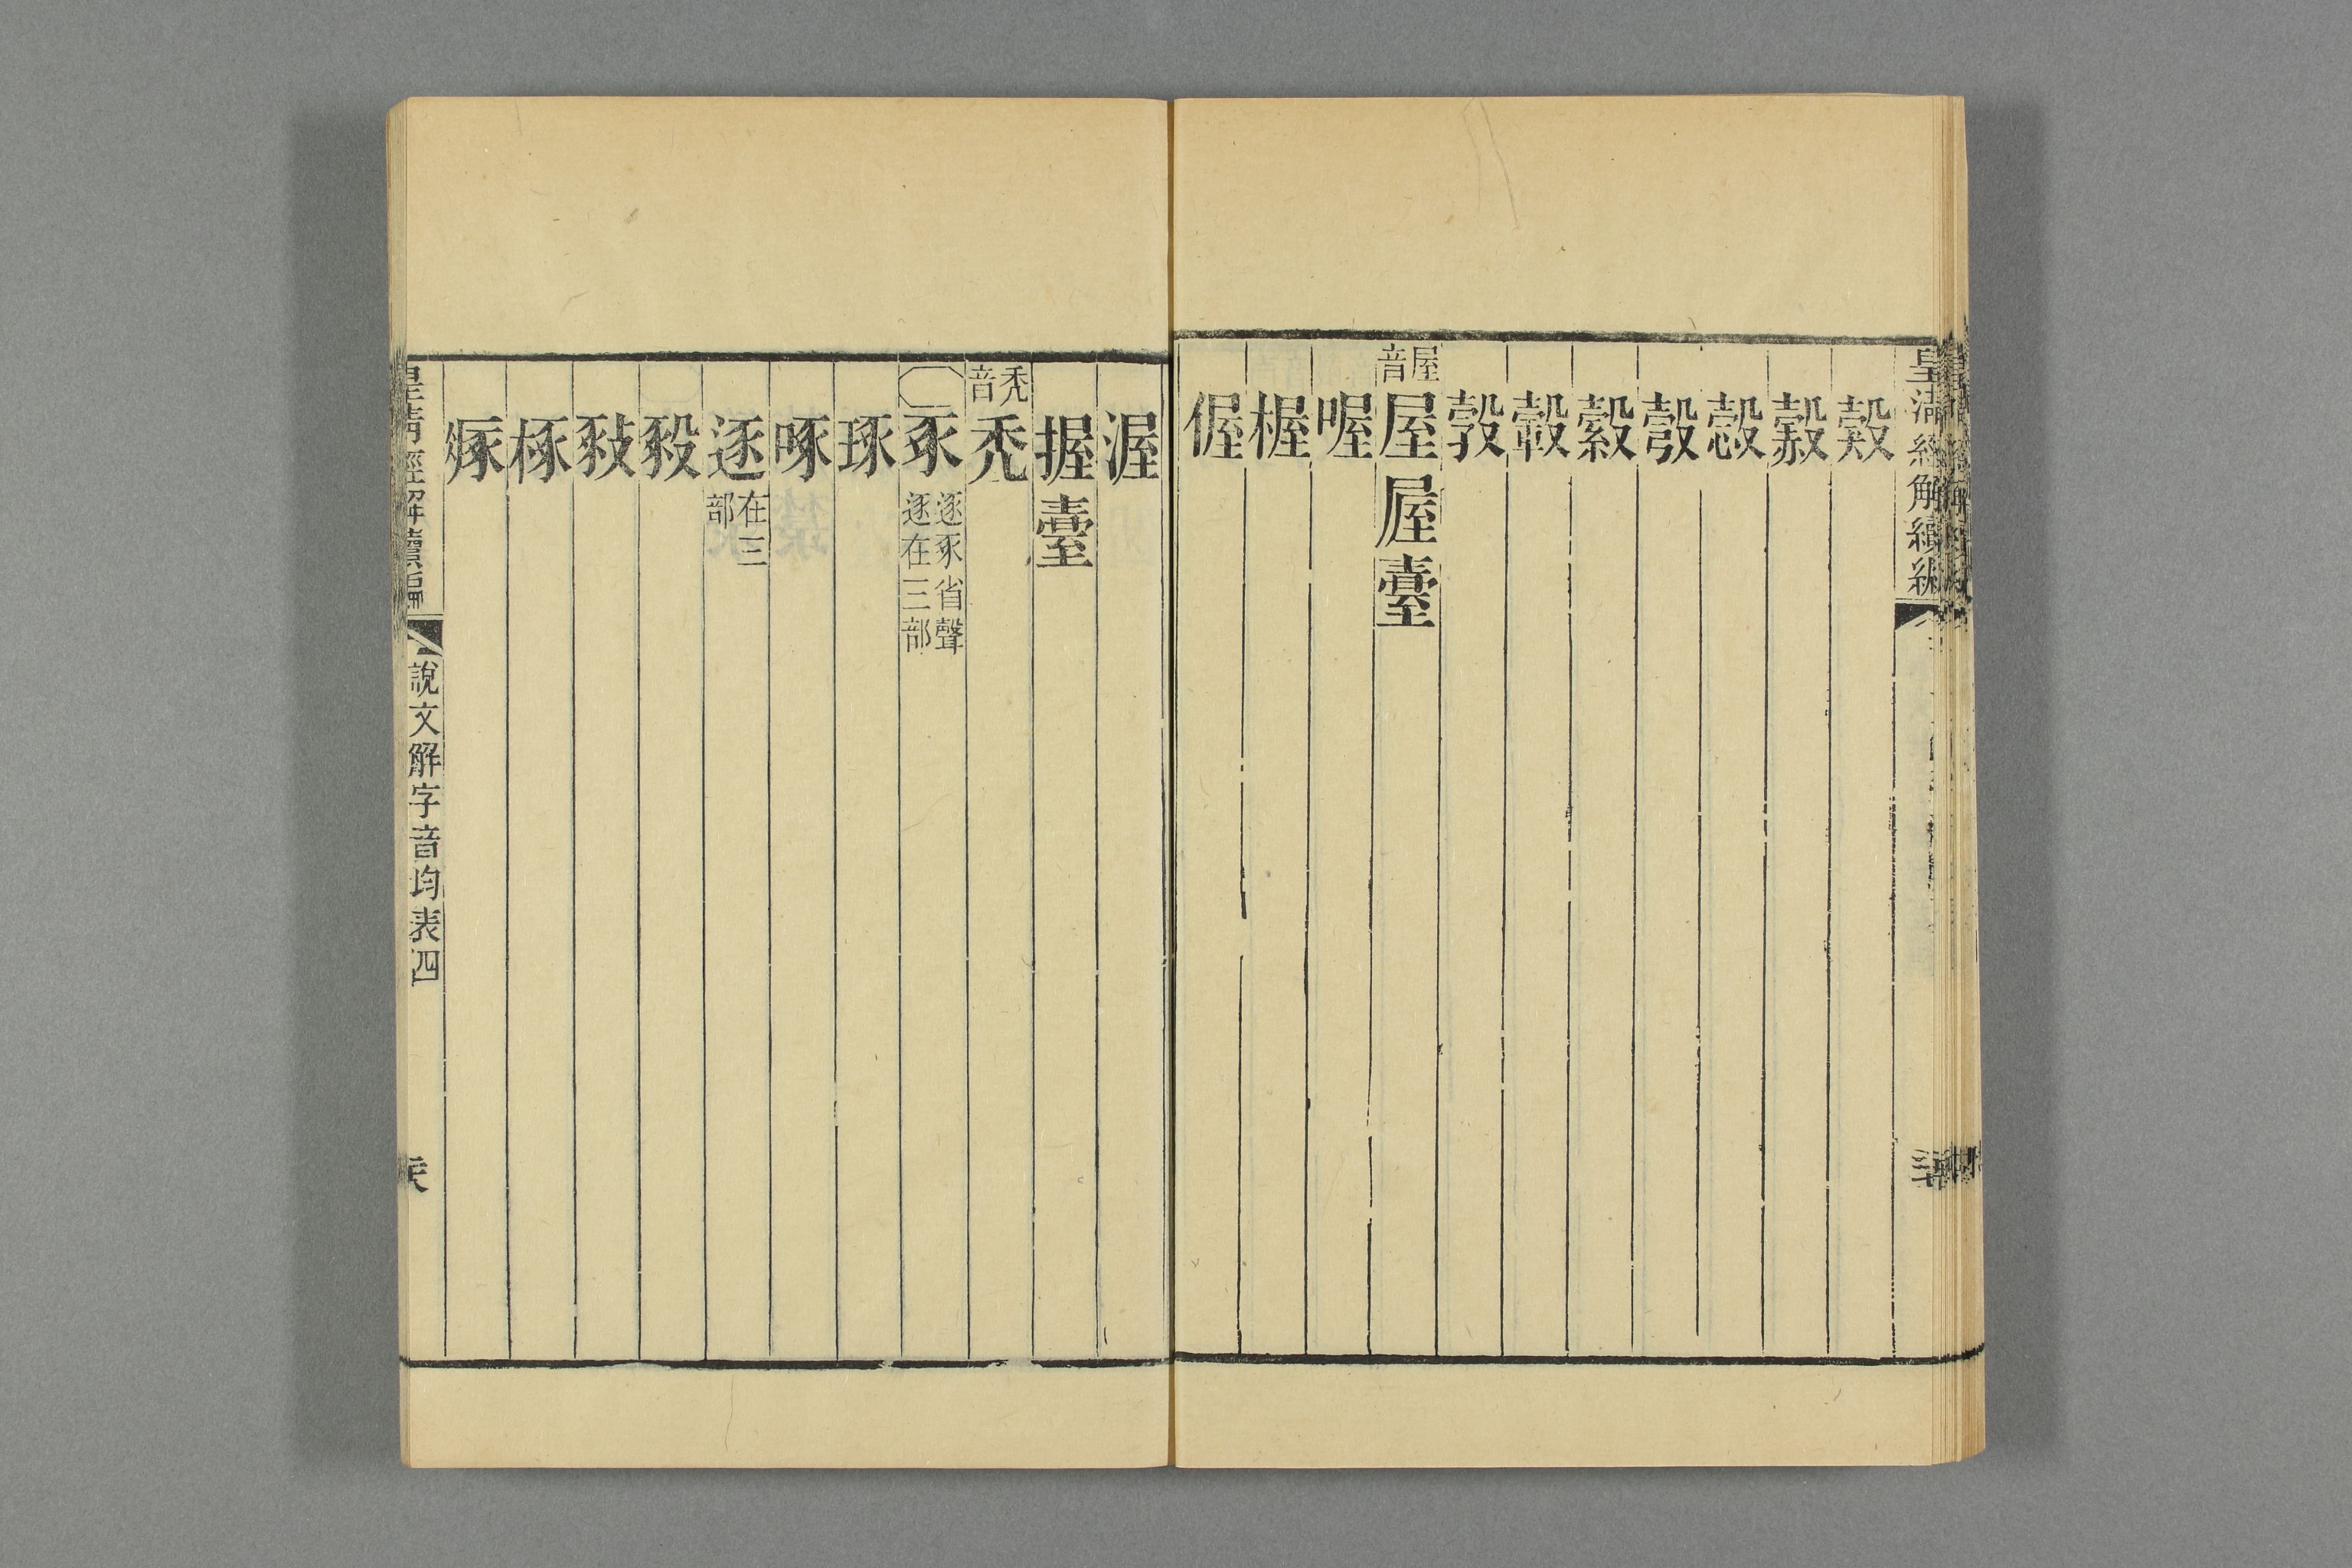 皇清經解續編
愨
彀
縠
轂
㝅
屋音 屋
喔
楃
偓
渥
握
禿音 禿
豖 逐豖省聲逐在三部
琢
啄
逐 在三部
豛
椓
皇清經解續編 說文解字音均表四